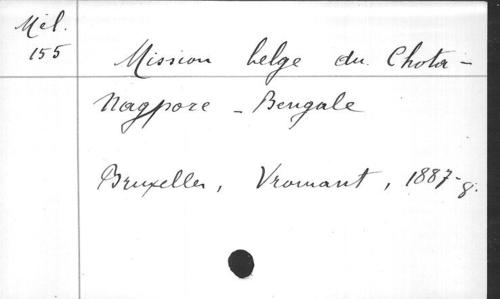 Mél.
155
Mission belge du Chota-
Nagpore - Bengale
Bruxelles, Vromant, 1887-
8.